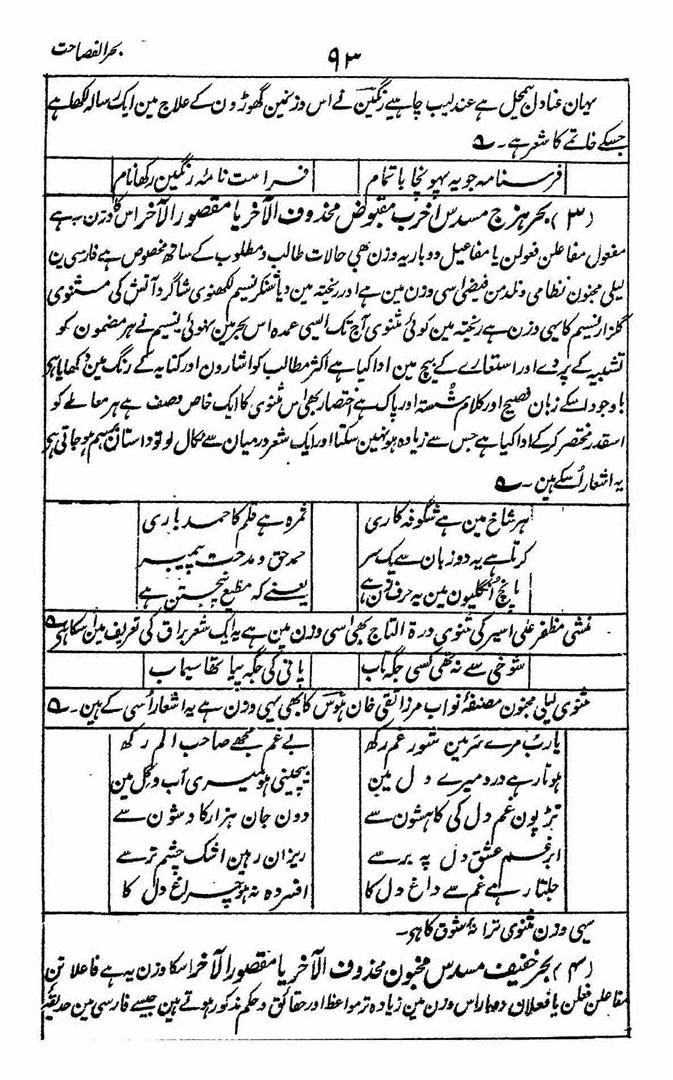 بحر الفصاحت
۹۳
یہان عنادل بیمحل ہے عندلیب چاہیے رنگین نے اس وزنمین گھوڑون کے علاج مین ایک رسالہ لکھا ہے
جسکے خاتمے کا شعر ہے۔ ؎
فرسنامہ جو یہ پہونچا باتمام فراست نامۂ رنگین رکھا نام
(۳) بحر ہزج مسدس اخرب مقبوض محذوف الآخر یا مقصور الآخر اس کا وزن یہ ہے
مفعول مفاعلن فعولن یا مفاعیل دوبار یہ وزن بھی حالات طالب و مطلوب کے ساتھ مخصوص ہے فارسی ین
لیلی مجنون نظامی و نلدمن فیضی اسی وزن مین ہے اور ریختہ مین دیاشنکر نسیم لکھنوی شاگرد آتش کی مثنوی
گلزار نسیم کا یہی وزن ہے ریختہ مین کوئی مثنوی آج تک ایسی عمدہ اس بحر مین نہوئی نسیم نے ہر مضمون کو
تشبیہ کے پردے اور استعارے کے پیچ مین ادا کیا ہے اکثر مطالب کو اشارون اور کنایہ کے رنگ مین دکھایا ہی
باوجود اسکے زبان فصیح اور کلام شستہ اور پاک ہے اختصار بھی اس مثنوی کا ایک خاص وصف ہے ہر معاملے کو
اسقدر مختصر کرکے ادا کیا ہے جس سے زیادہ ہو نہین سکتا اور ایک شعر درمیان سے نکال لو تو داستان برہم ہو جاتی ہی
یہ اشعار اُسکے ہین۔ ؎
ہر شاخ مین ہے شگوفہ کاری ثمرہ ہے قلم کا حمد باری
کرتا ہے یہ دو زبان سے یکسر حمد حق و مدحت پیمبر
پانچ انگلیون مین یہ حرف زن ہے یعنے کہ مطیع پنجتن ہے
منشی مظفر علی اسیر کی مثنوی درۃ التاج بھی اسی وزن مین ہے یہ ایک شعر براق کی تعریف مین اسکا ہی ؎
شوخی سے نہ تھی کسی جگہ تاب پانی کی جگہ پیا تھا سیماب
مثنوی لیلی مجنون مصنفۂ نواب مرزا تقی خان ہوس کا بھی یہی وزن ہے یہ اشعار اُسی کے ہین۔ ؎
یارب مرے سر مین شور غم رکھ بے غم مجھے صاحب الم رکھ
ہوتا رہے درد میرے دل مین بیچینی ہو میری آب و گل مین
تڑپون غم دل کی کاہشون سے دون جان ہزار کاوشون سے
ابر غم عشق دل پہ برسے ریزان رہین اشک چشم تر سے
جلتا رہے غم سے داغ دل کا افسردہ نہ ہو چراغ دل کا
یہی وزن مثنوی ترانۂ شوق کا ہی۔
(۴) بحر خفیف مسدس مخبون محذوف الآخر یا مقصور الآخر اسکا وزن یہ ہے فاعلاتن
مفاعلن فعلن یا فعلان دوبار اس وزن مین زیادہ تر مواعظ اور حقائق و حکم مذکور ہوتے ہین جیسے فارسی مین حدیقہ